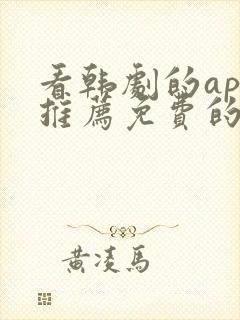 看韩剧的ap
推薦免費的
黄凌馬